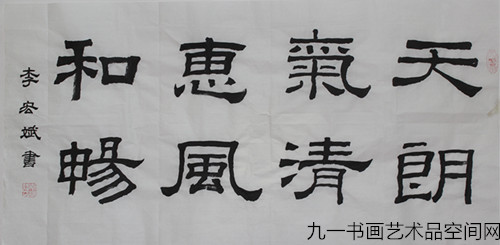 天朗
氣清
惠風
和暢
李宏斌書
九一书画艺术品空间网